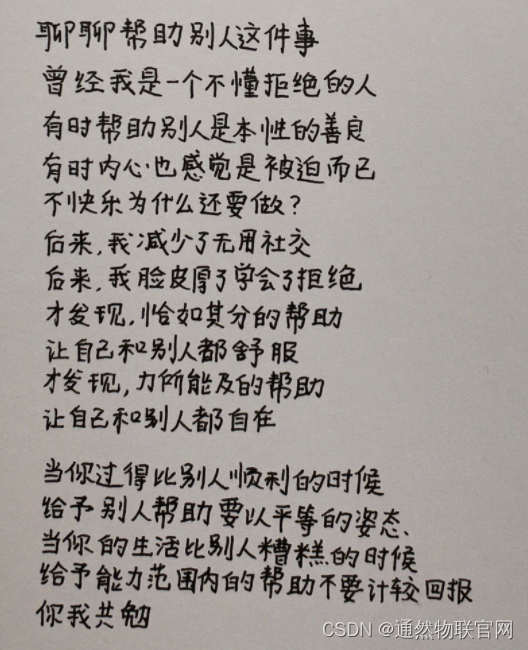 聊聊帮助别人这件事
曾经我是一个不懂拒绝的人
有时帮助别人是本性的善良
有时内心也感觉是被迫而已
不快乐为什么还要做?
后来,我减少了无用社交
后来,我脸皮厚了学会了拒绝
才发现,恰如其分的帮助
让自己和别人都舒服
才发现,力所能及的帮助
让自己和别人都自在
当你过得比别人顺利的时候
给予别人帮助要以平等的姿态、
当你的生活比别人糟糕的时候
给予能力范围内的帮助不要计较回报
你我共勉
CSDN @通然物联官网